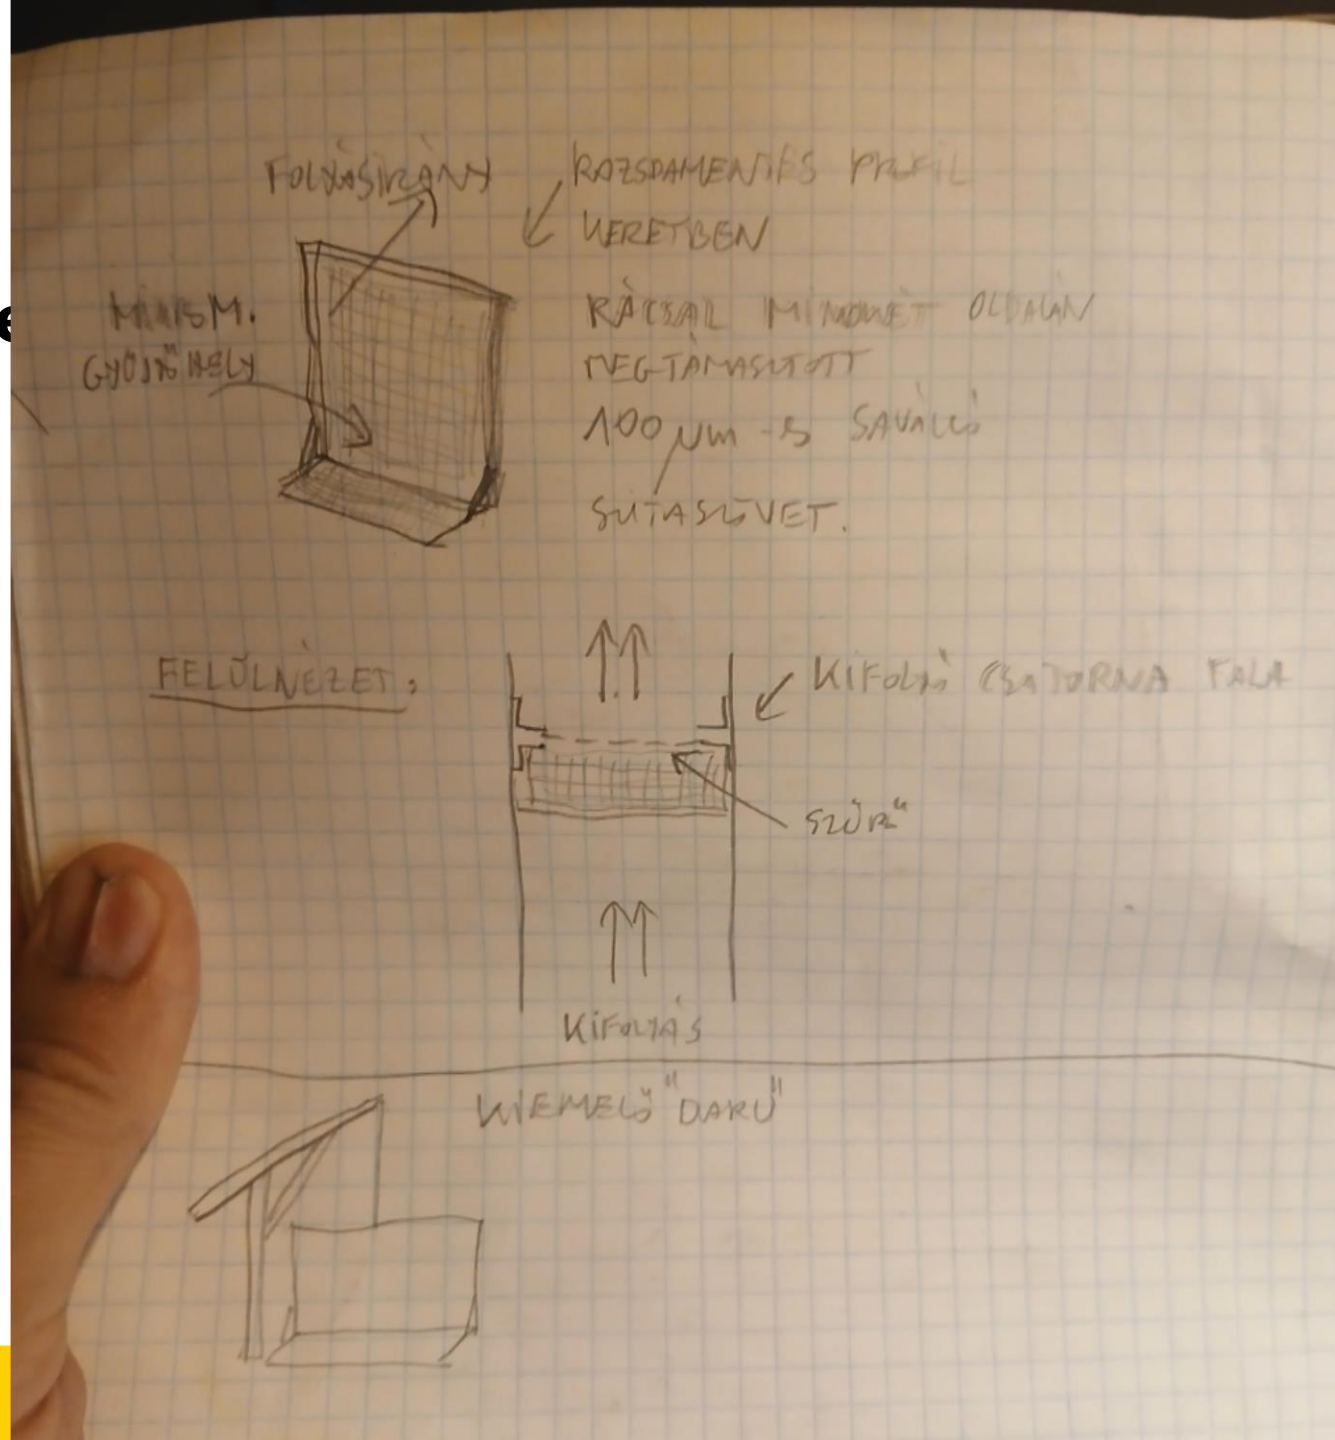 FOLYÁSIRÁNY
ROZSDAMENTES PROFIL
KERETBEN
RÁCSAL MINDKÉT OLDALÁN
MEGTÁMASZTOTT
100 µm-S SAVÁLLÓ
SZITASZÖVET.
MINIM.
GYŰJTŐHELY
FELÜLNÉZET:
KIFOLYÓ CSATORNA FALA
SZŰRŐ
KIFOLYÁS
KIEMELŐ "DARU"